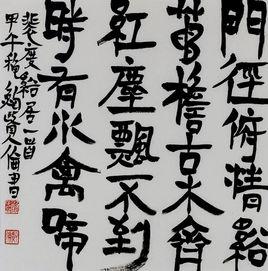 門徑俯清谿
茅檐古木齊
紅塵飄不到
時有水禽啼
裴度谿居一首
甲午
書